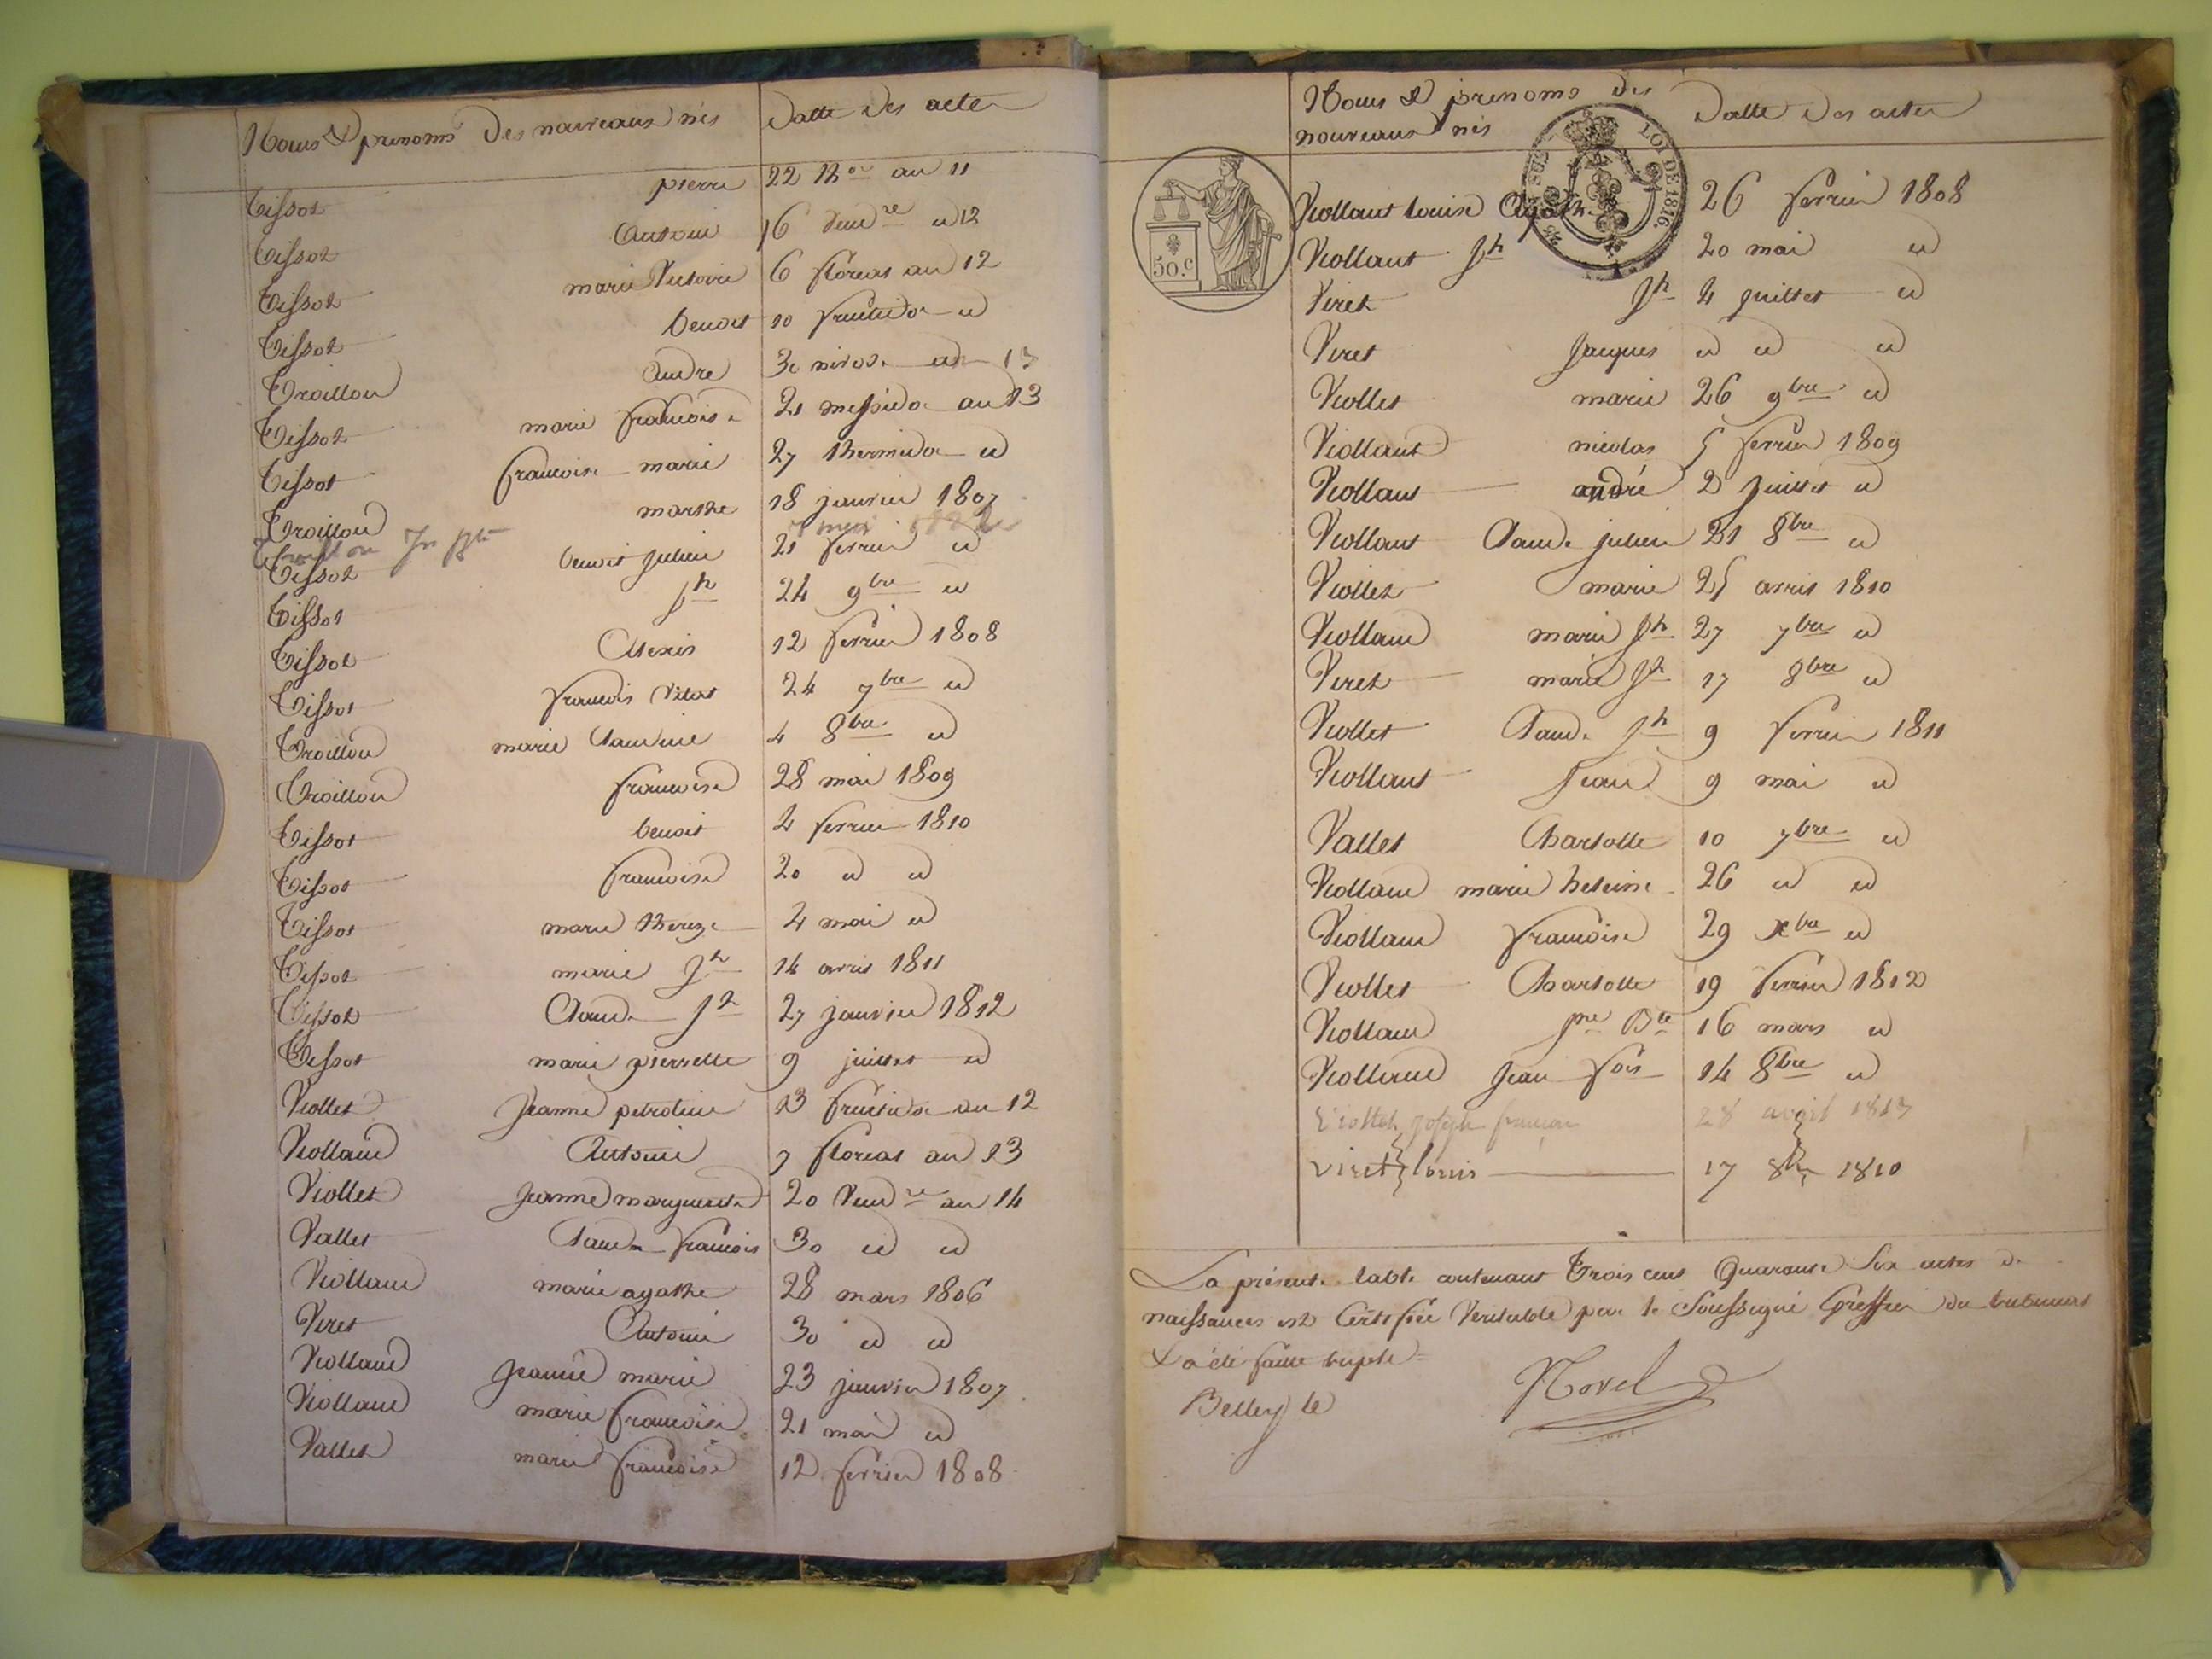 Noms & prenoms des nouveaux nés Datte des actes
Tissot pierre 22 th.or an 11
Tissot Antoine 16 Vend.re an 12
Tissot marie Victoire 6 floreal an 12
Tissot benoit 10 fructidor id
Troillou André 30 nivose an 13
Tissot marie francoise 21 messidor an 13
Tissot francoise marie 27 thermidor id
Troillou marthe 18 janvier 1807
Tissot benoit julien 21 fevrier id
Tissot Jh 24 9bre id
Tissot Alexis 12 fevrier 1808
Tissot francois Vital 24 7bre id
Troillou marie Claudine 4 8bre id
Troillou francoise 28 mai 1809
Tissot benoit 4 fevrier 1810
Tissot francoise 20 id id
Tissot marie thereze 4 mai id
Tissot marie Jh 14 avril 1811
Tissot Claude Jh 27 janvier 1812
Tissot marie pierrette 9 juillet id
Viollet Jeanne petroline 23 fructidor an 12
Viollaud Antoine 7 floreal an 13
Viollet Jeanne marguerite 20 Vend.re an 14
Vallet Claude francois 30 id id
Viollaud marie agathe 28 mars 1806
Viret Antoine 30 id id
Viollaud Jeanne marie 23 janvier 1807
Viollaud marie francoise 21 mai id
Vallet marie francoise 12 fevrier 1808
Noms & prenoms des
nouveaux nés Datte des actes
LOI DE 1816.
50.c
Viollant Louise 26 fevrier 1808
Viollant Jh 20 mai id
Viret Jh 4 juillet id
Viret Jacques id id id
Viollet marie 26 9bre id
Viollant nicolas 5 fevrier 1809
Viollant andré 2 juillet id
Viollant Claude julien 21 8bre id
Viollet marie 25 avril 1810
Viollaud marie Jh 27 7bre id
Viret marie Jh 17 8bre id
Viollet Claude Jh 9 fevrier 1811
Viollant Jean 9 mai id
Vallet Charlotte 10 7bre id
Viollaud marie heleine 26 id id
Viollaud francoise 29 xbre id
Viollet Charlotte 19 fevrier 1812
Viollaud Jne Bte 16 mars id
Viollaud Jean fois 14 8bre id
Viollet joseph françois 28 avril 1813
Viret Louis 17 8bre 1810
La présente table contenant Trois cent Quarante Six actes de
naissances est Certifiée Veritable par le Soussigné Greffier du tribunal
& a été faitte triple
Belley le
Morel